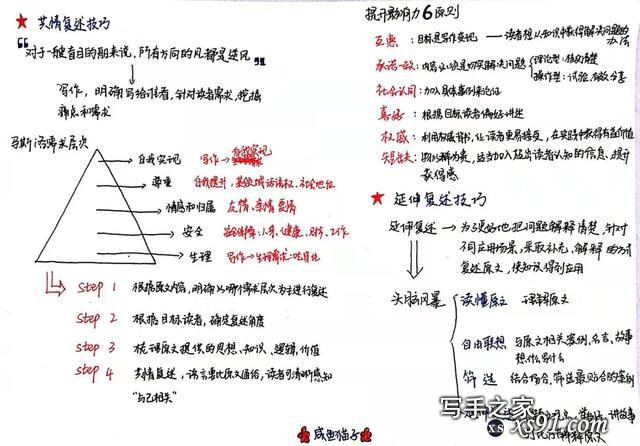 ★ 共情复述技巧
"对于一艘盲目的船来说，所有方向的风都是逆风"
写作，明确写给谁看，针对读者需求，挖掘
痛点和需求
马斯洛需求层次
自我实现 写作→自我实现
尊重 自我提升，某领域话语权，社会地位
情感和归属 友情、亲情 爱情
安全 人身、健康、财务、工作
生理 写作→生理需求：吃穿住
step 1 根据原文内容，明确以哪个需求层次为主进行复述
step 2 根据目标读者，确定复述角度
step 3 梳理原文提供的思想、知识、逻辑、价值
step 4 共情复述，语言要比原文通俗，读者可清晰感知
"与己相关"
提升影响力6原则
互惠：目标是写作变现——读者想从知识中获得解决问题的
办法
承诺一致：内容必须是切实解决问题
理论型：核对清楚
操作型：试验、有效分享
社会认同：加入具体事例来论证
喜好：根据目标读者偏好讲述
权威：利用权威背书，让读者更易接受，在实践中获得有益价值
短缺：物以稀为贵，适当加入超出读者认知的信息，提升
获得感
★ 延伸复述技巧
延伸复述→为了更好地把问题解释清楚，针对
不同应用场景，采取补充、解释的方式
复述原文，使知识得到应用
头脑风暴
读懂原文 理解原文
自由联想 与原文相关案例、名言、故事
想什么写什么
筛选 结合场合，筛选最贴合的案例
咸鱼猫子
写手之家
xs91.com